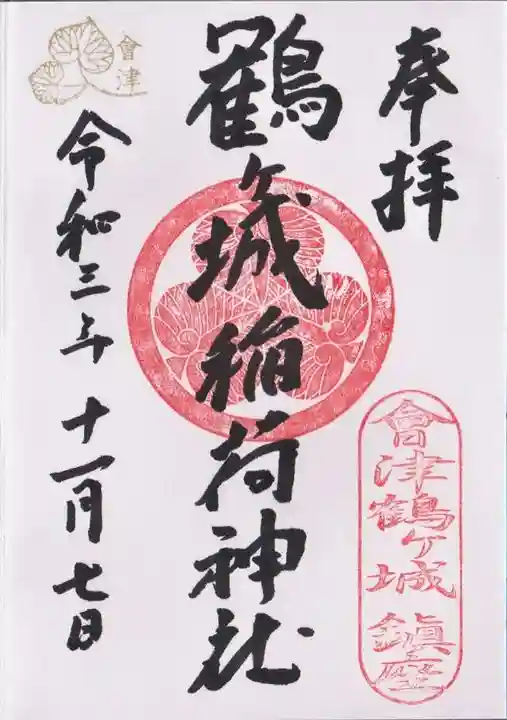 奉拝
會津鶴ヶ城 鎮座
鶴ヶ城稲荷神社
令和三年 十一月七日
會津